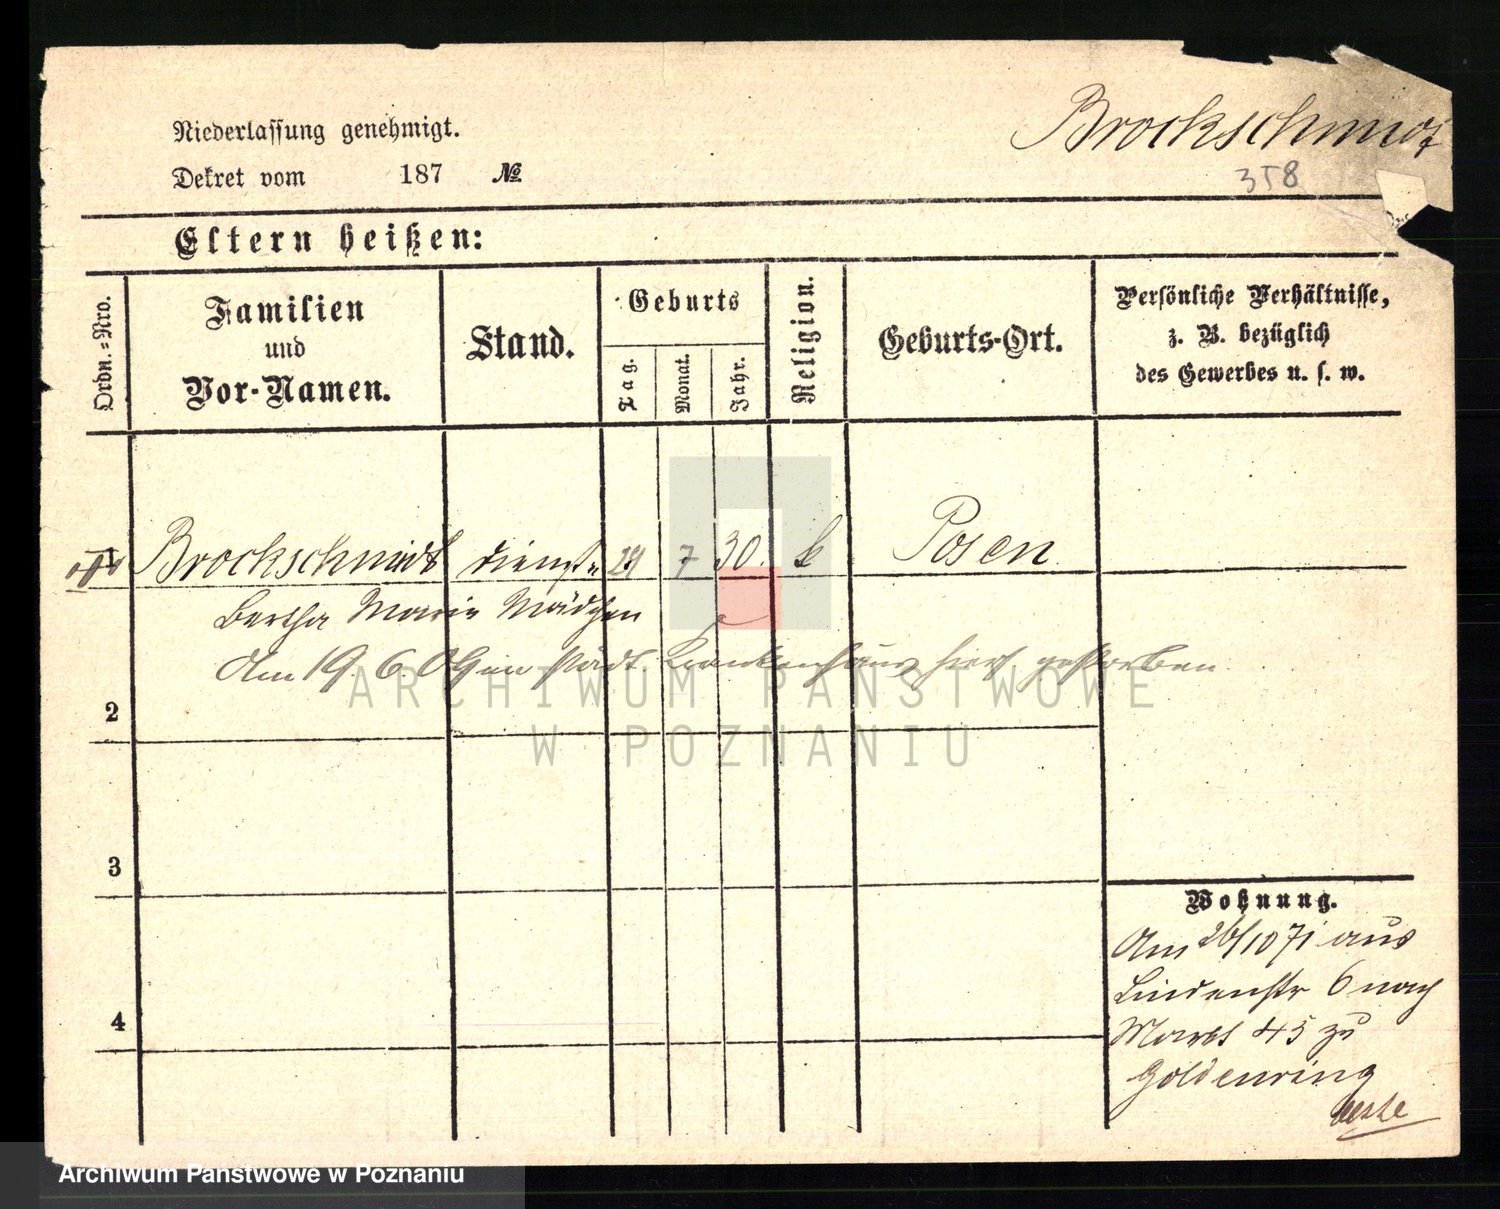 Brockschmidt
358
Niederlassung genehmigt.
Dekret vom 187 №
Eltern heißen:
Ordn.-Nro.
Familien
und
Vor-Namen.
Stand.
Geburts
Tag.
Monat.
Jahr.
Religion.
Geburts-Ort.
Persönliche Verhältnisse,
z. B. bezüglich
des Gewerbes u. s. w.
1 Brockschmidt Dienst- 7 30. k Posen
Bertha Marie Mädchen
Am 19. 6. 09 im städt. Krankenhaus hier gestorben.
ARCHIWUM PAŃSTWOWE
W POZNANIU
2
3
4
Wohnung.
Am 26/10 71 aus
Lindenstr 6 nach
Markt 45 zu
Goldenring
Archiwum Państwowe w Poznaniu